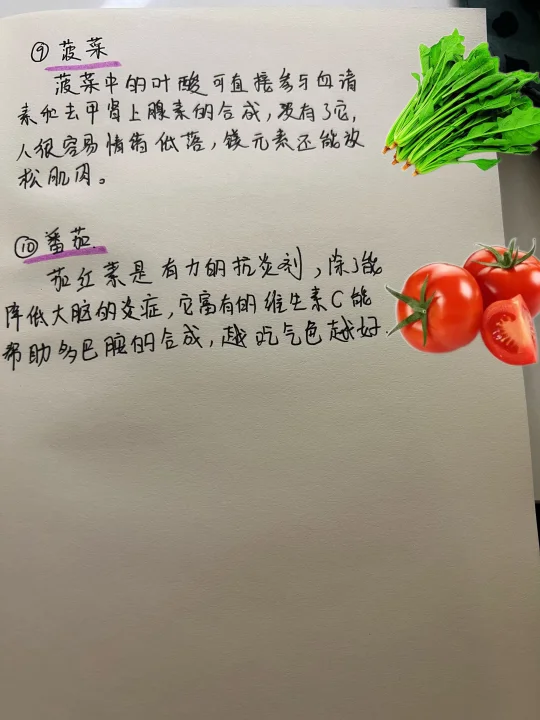 ⑨ 菠菜
菠菜中的叶酸可直接参与血清
素和去甲肾上腺素的合成，没有了它，
人很容易情绪低落，镁元素还能放
松肌肉。
⑩ 番茄.
茄红素是有力的抗炎剂，除了能
降低大脑的炎症，它富有的维生素C能
帮助多巴胺的合成，越吃气色越好.